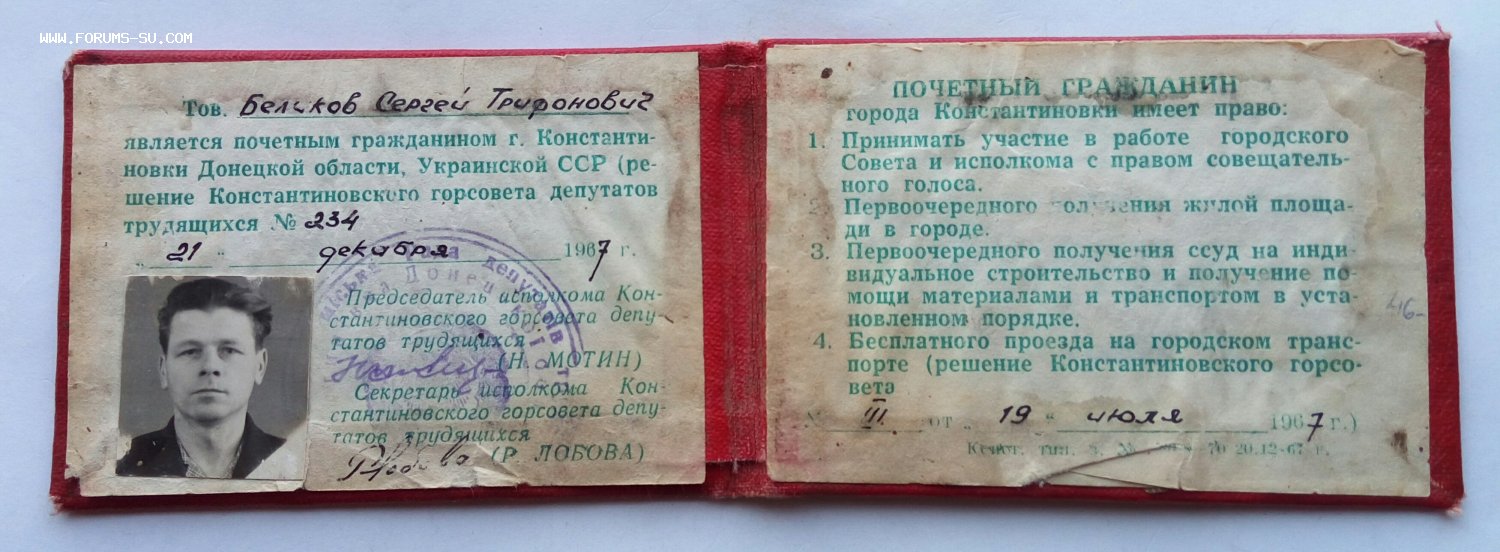 WWW.FORUMS-SU.COM
Тов. Беликов Сергей Трифонович
является почетным гражданином г. Константи-
новки Донецкой области, Украинской ССР (ре-
шение Константиновского горсовета депутатов
трудящихся № 234
„ 21 “ декабря 1967 г.
Председатель исполкома Кон-
стантиновского горсовета депу-
татов трудящихся
(Н. МОТИН)
Секретарь исполкома Кон-
стантиновского горсовета депу-
татов трудящихся
(Р. ЛОБОВА)
ПОЧЕТНЫЙ ГРАЖДАНИН
города Константиновки имеет право:
1. Принимать участие в работе городского
Совета и исполкома с правом совещатель-
ного голоса.
2. Первоочередного получения жилой площа-
ди в городе.
3. Первоочередного получения ссуд на инди-
видуальное строительство и получение по-
мощи материалами и транспортом в уста-
новленном порядке.
4. Бесплатного проезда на городском транс-
порте (решение Константиновского горсо-
вета
№ III от „ 19 “ июля 1967 г.)
тип. з. № 70 20.12-67 г.
46-